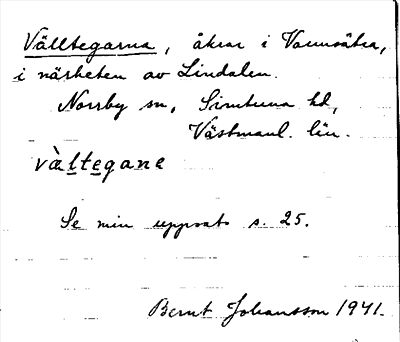 Välltegarna, åkrar i Vannsätra,
i närheten av Lindalen.
Norrby sn, Simtuna hd,
Västmanl. län.
vàltegane
Se min uppsats s. 25.
Bernt Johansson 1941.